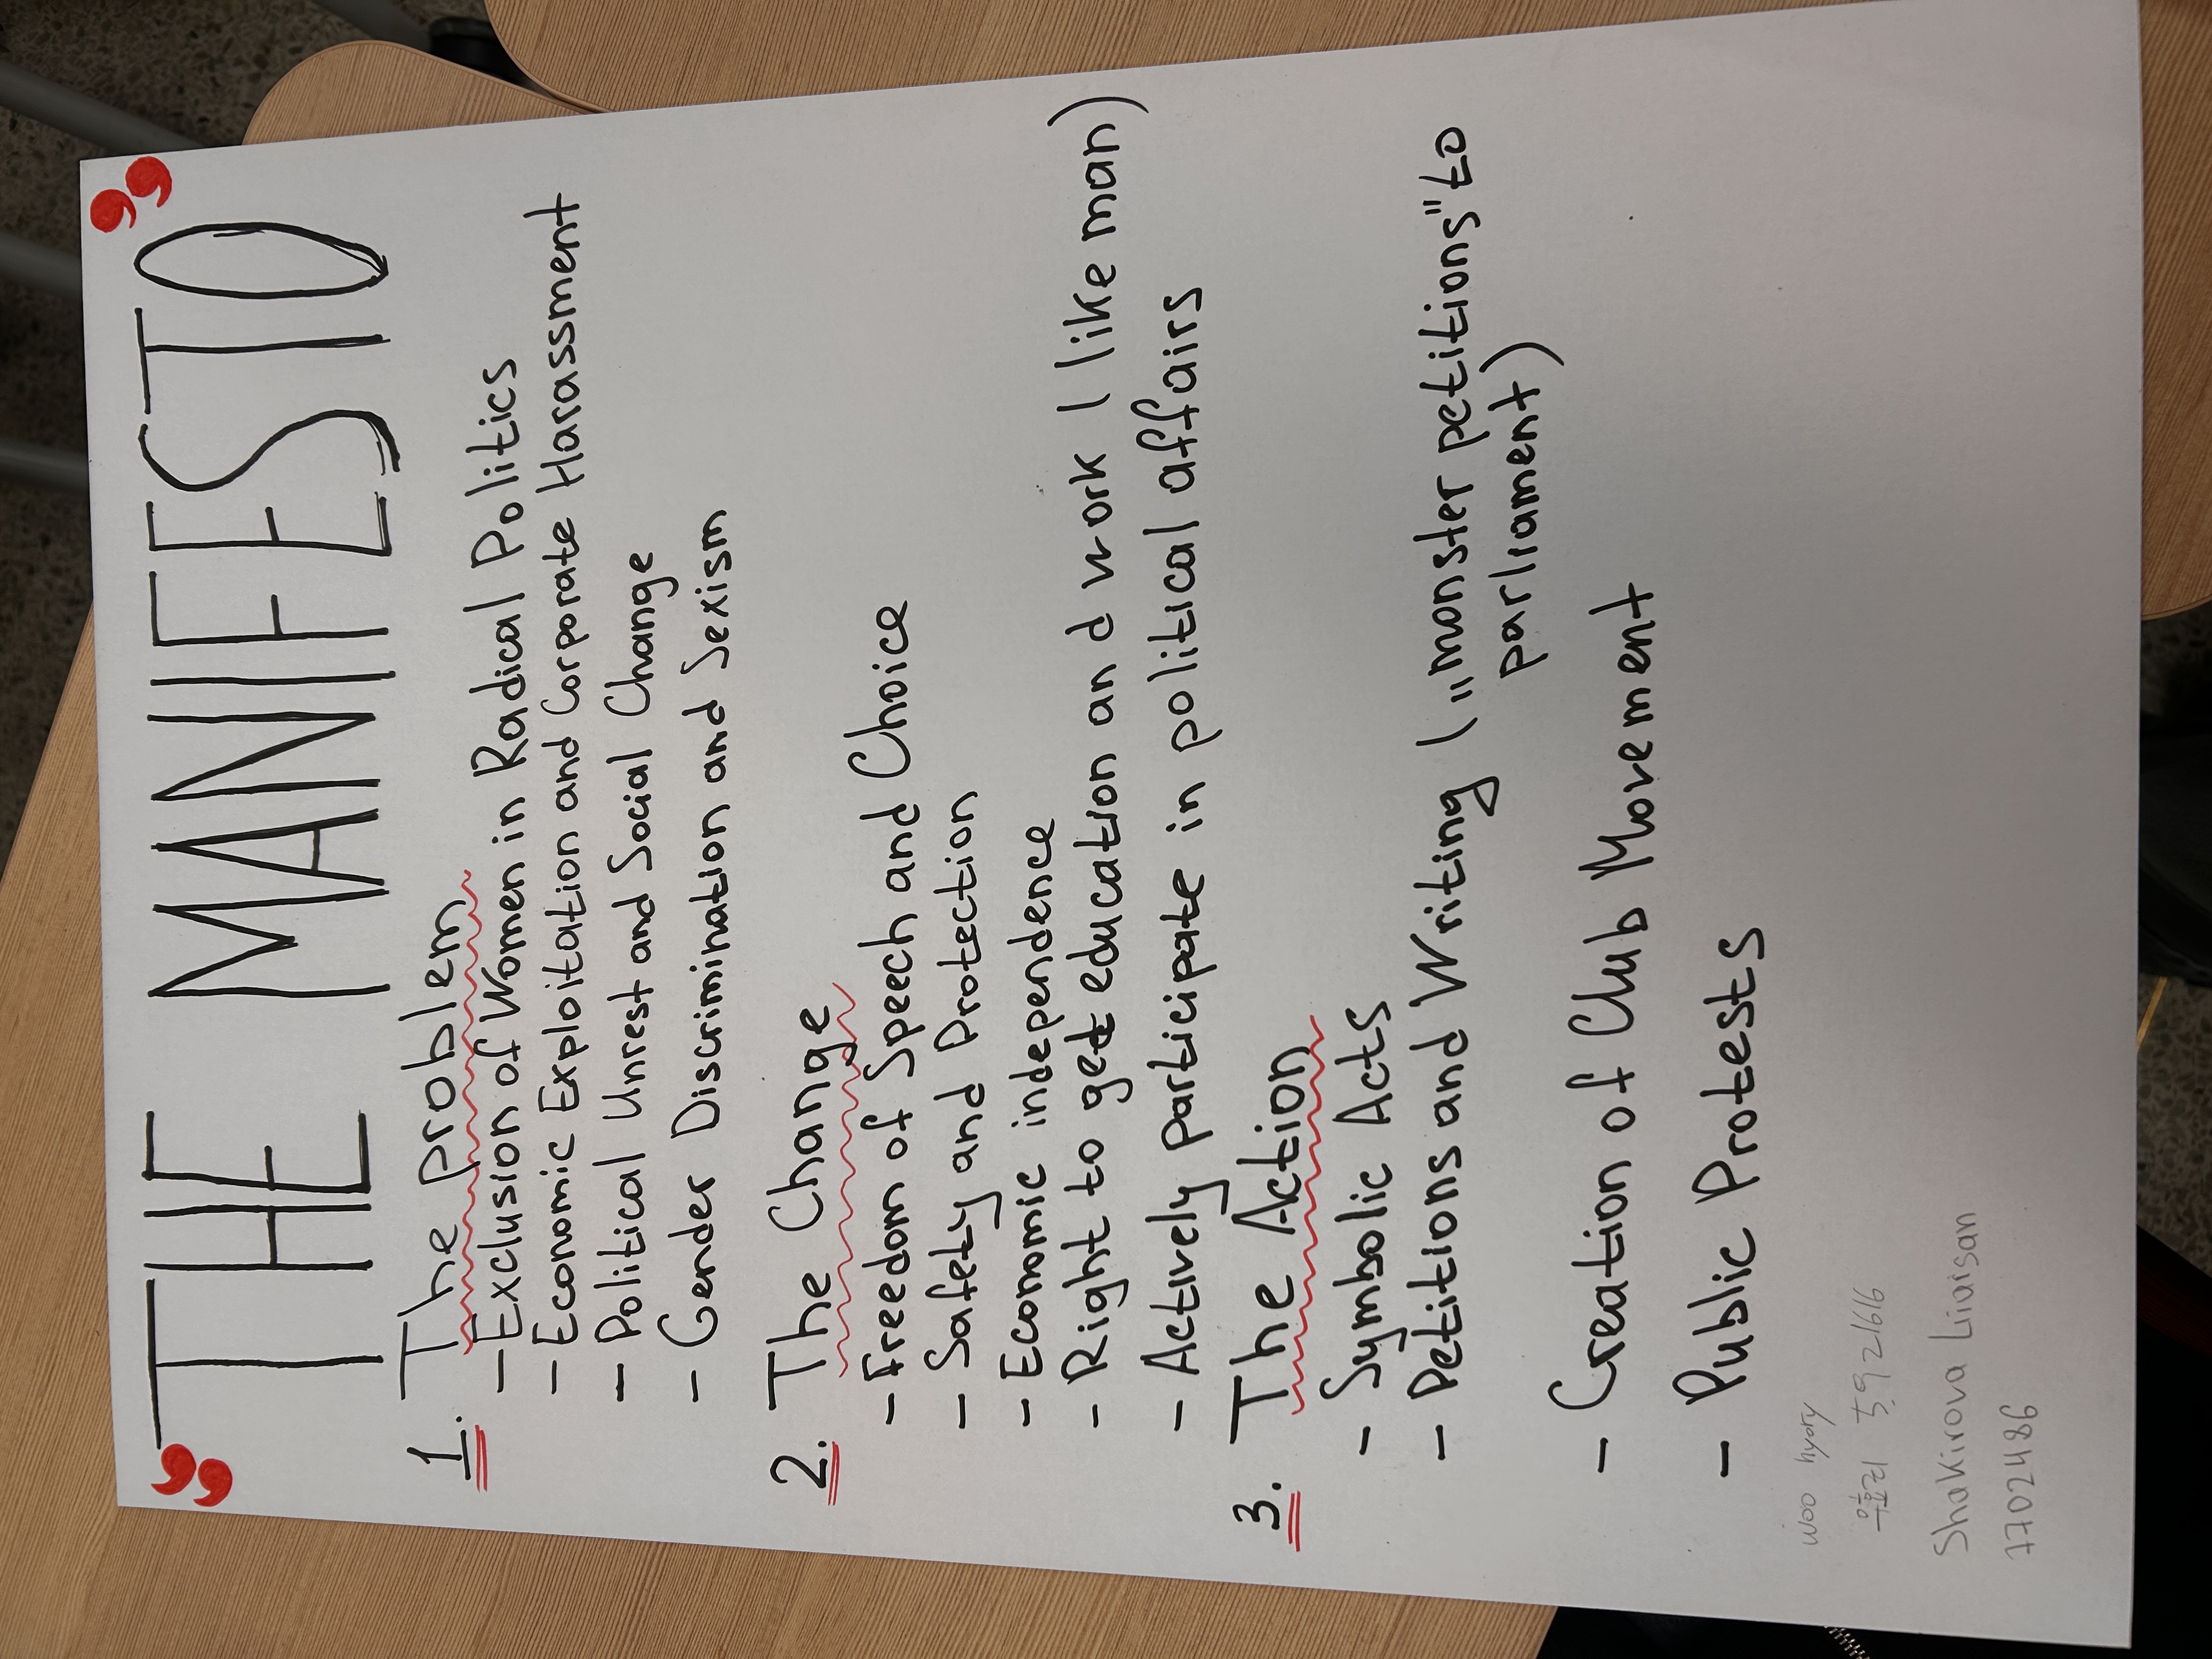 "THE MANIFESTO"
1. The problem
- Exclusion of Women in Radical Politics
- Economic Exploitation and Corporate Harassment
- Political Unrest and Social Change
- Gender Discrimination and Sexism
2. The Change
- Freedom of Speech and Choice
- Safety and Protection
- Economic independence
- Right to get education and work (like man)
- Actively participate in political affairs
3. The Action
- Symbolic Acts
- Petitions and Writing ("monster petitions" to
parliament)
- Creation of Club Movement
- Public Protests
Woo
5921616
Shakirova Liaisan
7702486